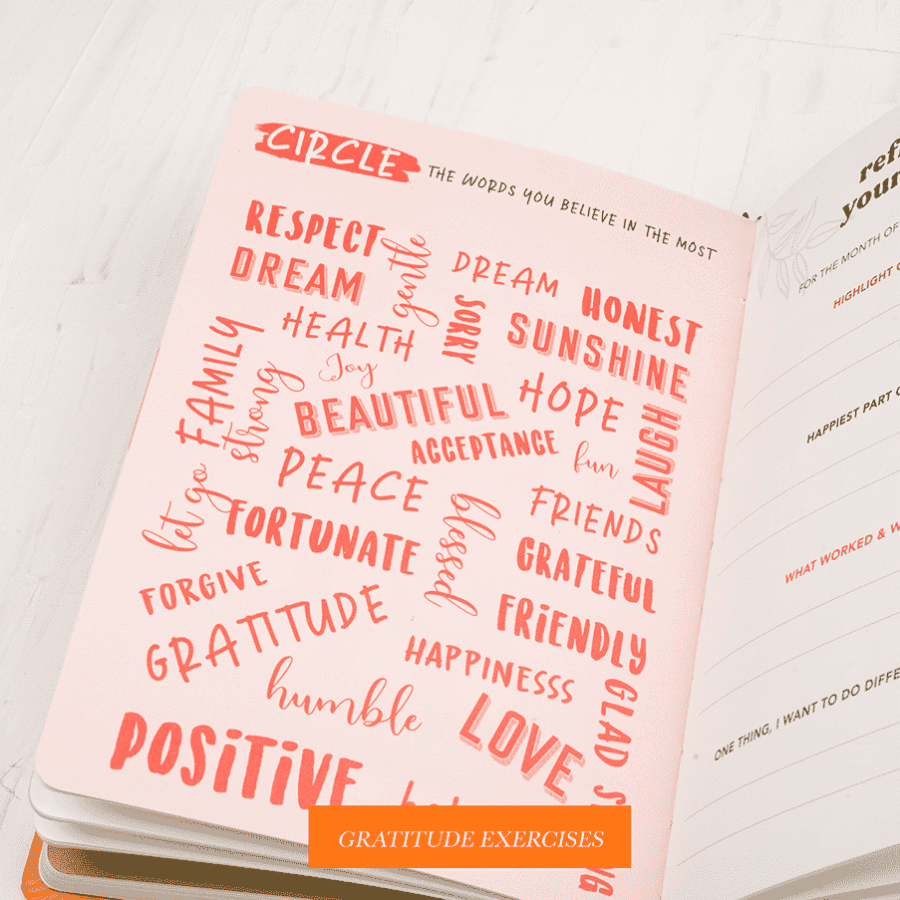 CIRCLE THE WORDS YOU BELIEVE IN THE MOST
RESPECT
gentle
DREAM
DREAM
HONEST
HEALTH
SORRY
SUNSHINE
Joy
FAMILY
strong
BEAUTIFUL
HOPE
LAUGH
ACCEPTANCE
fun
PEACE
let go
blessed
FRIENDS
FORTUNATE
GRATEFUL
FORGIVE
FRiENDLY
GRATITUDE
HAPPINESSS
humble
GLAD
LOVE
POSiTiVE
GRATITUDE EXERCISES
your
FOR THE MONTH OF
HIGHLIGHT
HAPPIEST PART
WHAT WORKED &
ONE THING, I WANT TO DO